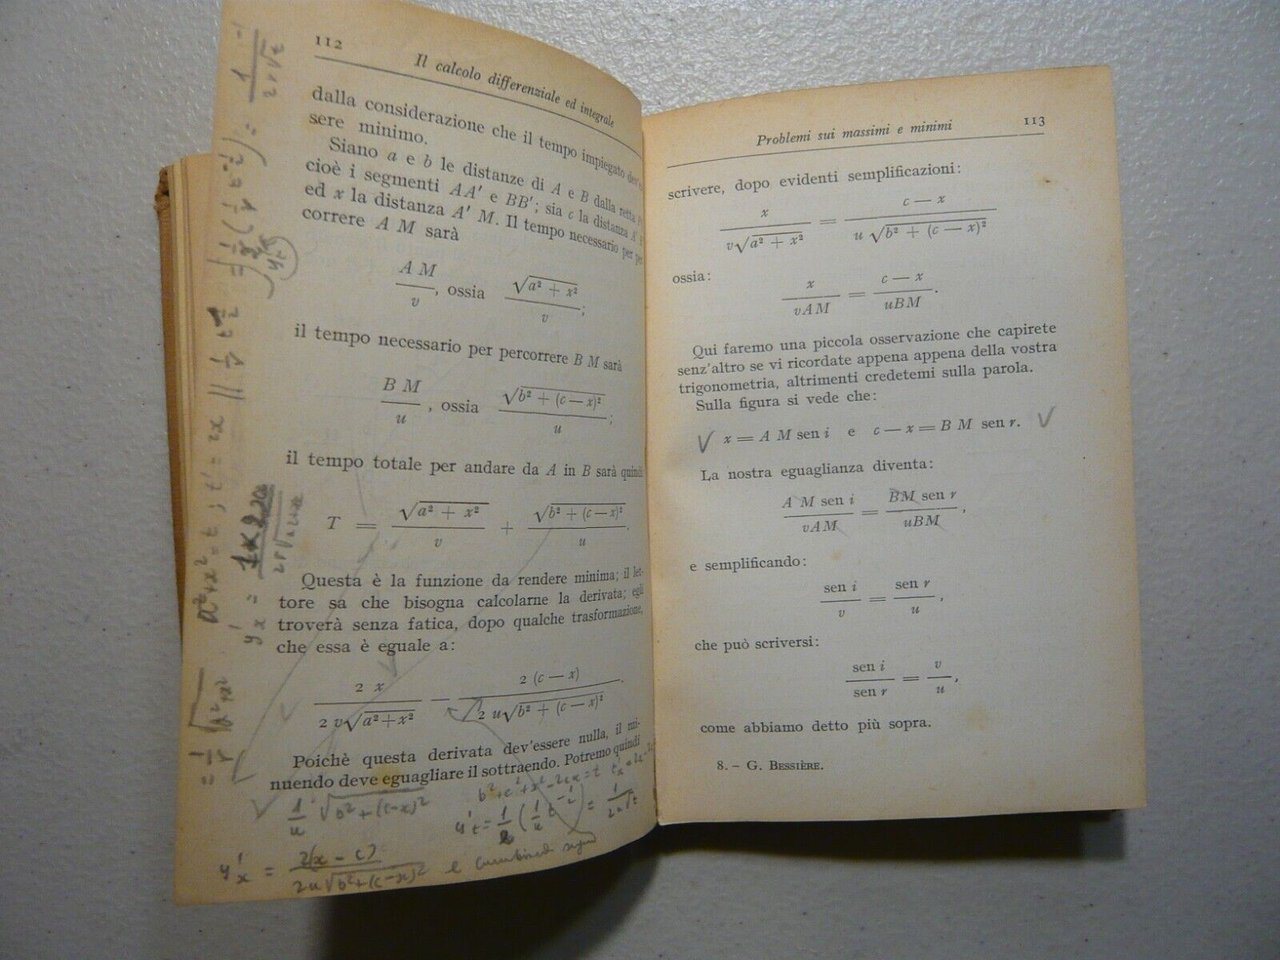 112
Il calcolo differenziale ed integrale
dalla considerazione che il tempo impiegato
sere minimo.
Siano a e b le distanze di A e B dalla retta
cioè i segmenti AA' e BB'; sia c la distanza A'
ed x la distanza A' M. Il tempo necessario per
correre A M sarà
A M / v, ossia √(a² + x²) / v;
il tempo necessario per percorrere B M sarà
B M / u, ossia √(b² + (c — x)²) / u;
il tempo totale per andare da A in B sarà quindi
T = √(a² + x²) / v + √(b² + (c — x)²) / u.
Questa è la funzione da rendere minima; il let-
tore sa che bisogna calcolarne la derivata; egli
troverà senza fatica, dopo qualche trasformazione,
che essa è eguale a:
2 x / 2 v√(a² + x²) — 2 (c — x) / 2 u√(b² + (c — x)²).
Poichè questa derivata dev'essere nulla, il mi-
nuendo deve eguagliare il sottraendo. Potremo quindi
1/u √(b² + (c-x)²
b² + c² + x² - 2cx = t
y't = 1/2 (1/u t^-1/2) = 1/2u√t
y'x = 2(x - c) / 2u√(b² + (c-x)² e
= 1/v √(a² + x²
a² + x² = t ; t' = 2x || 1/v t^1/2
Problemi sui massimi e minimi
113
scrivere, dopo evidenti semplificazioni:
x / v√(a² + x²) = c — x / u √(b² + (c — x)²)
ossia:
x / vAM = c — x / uBM.
Qui faremo una piccola osservazione che capirete
senz'altro se vi ricordate appena appena della vostra
trigonometria, altrimenti credetemi sulla parola.
Sulla figura si vede che:
x = A M sen i e c — x = B M sen r.
La nostra eguaglianza diventa:
A M sen i / vAM = BM sen r / uBM,
e semplificando:
sen i / v = sen r / u,
che può scriversi:
sen i / sen r = v / u,
come abbiamo detto più sopra.
8. – G. Bessière.